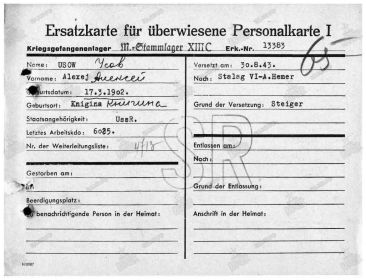 Ersatzkarte für überwiesene Personalkarte I
Kriegsgefangenenlager M.-Stammlager XIII C Erk.-Nr. 13383
Name: USOW Усов
Vorname: Alexej Алексей
Geburtsdatum: 17.3.1902.
Geburtsort: Knigina Книгина
Staatsangehörigkeit: UssR.
Letztes Arbeitskdo: 6025.
Nr. der Weiterleitungsliste: 4/13
Gestorben am:
an
Beerdigungsplatz:
benachrichtigende Person in der Heimat:
Versetzt am: 30.8.43.
Nach: Stalag VI-A.Hemer
65
Grund der Versetzung: Steiger
Entlassen am:
Nach:
Grund der Entlassung:
Anschrift in der Heimat:
SR